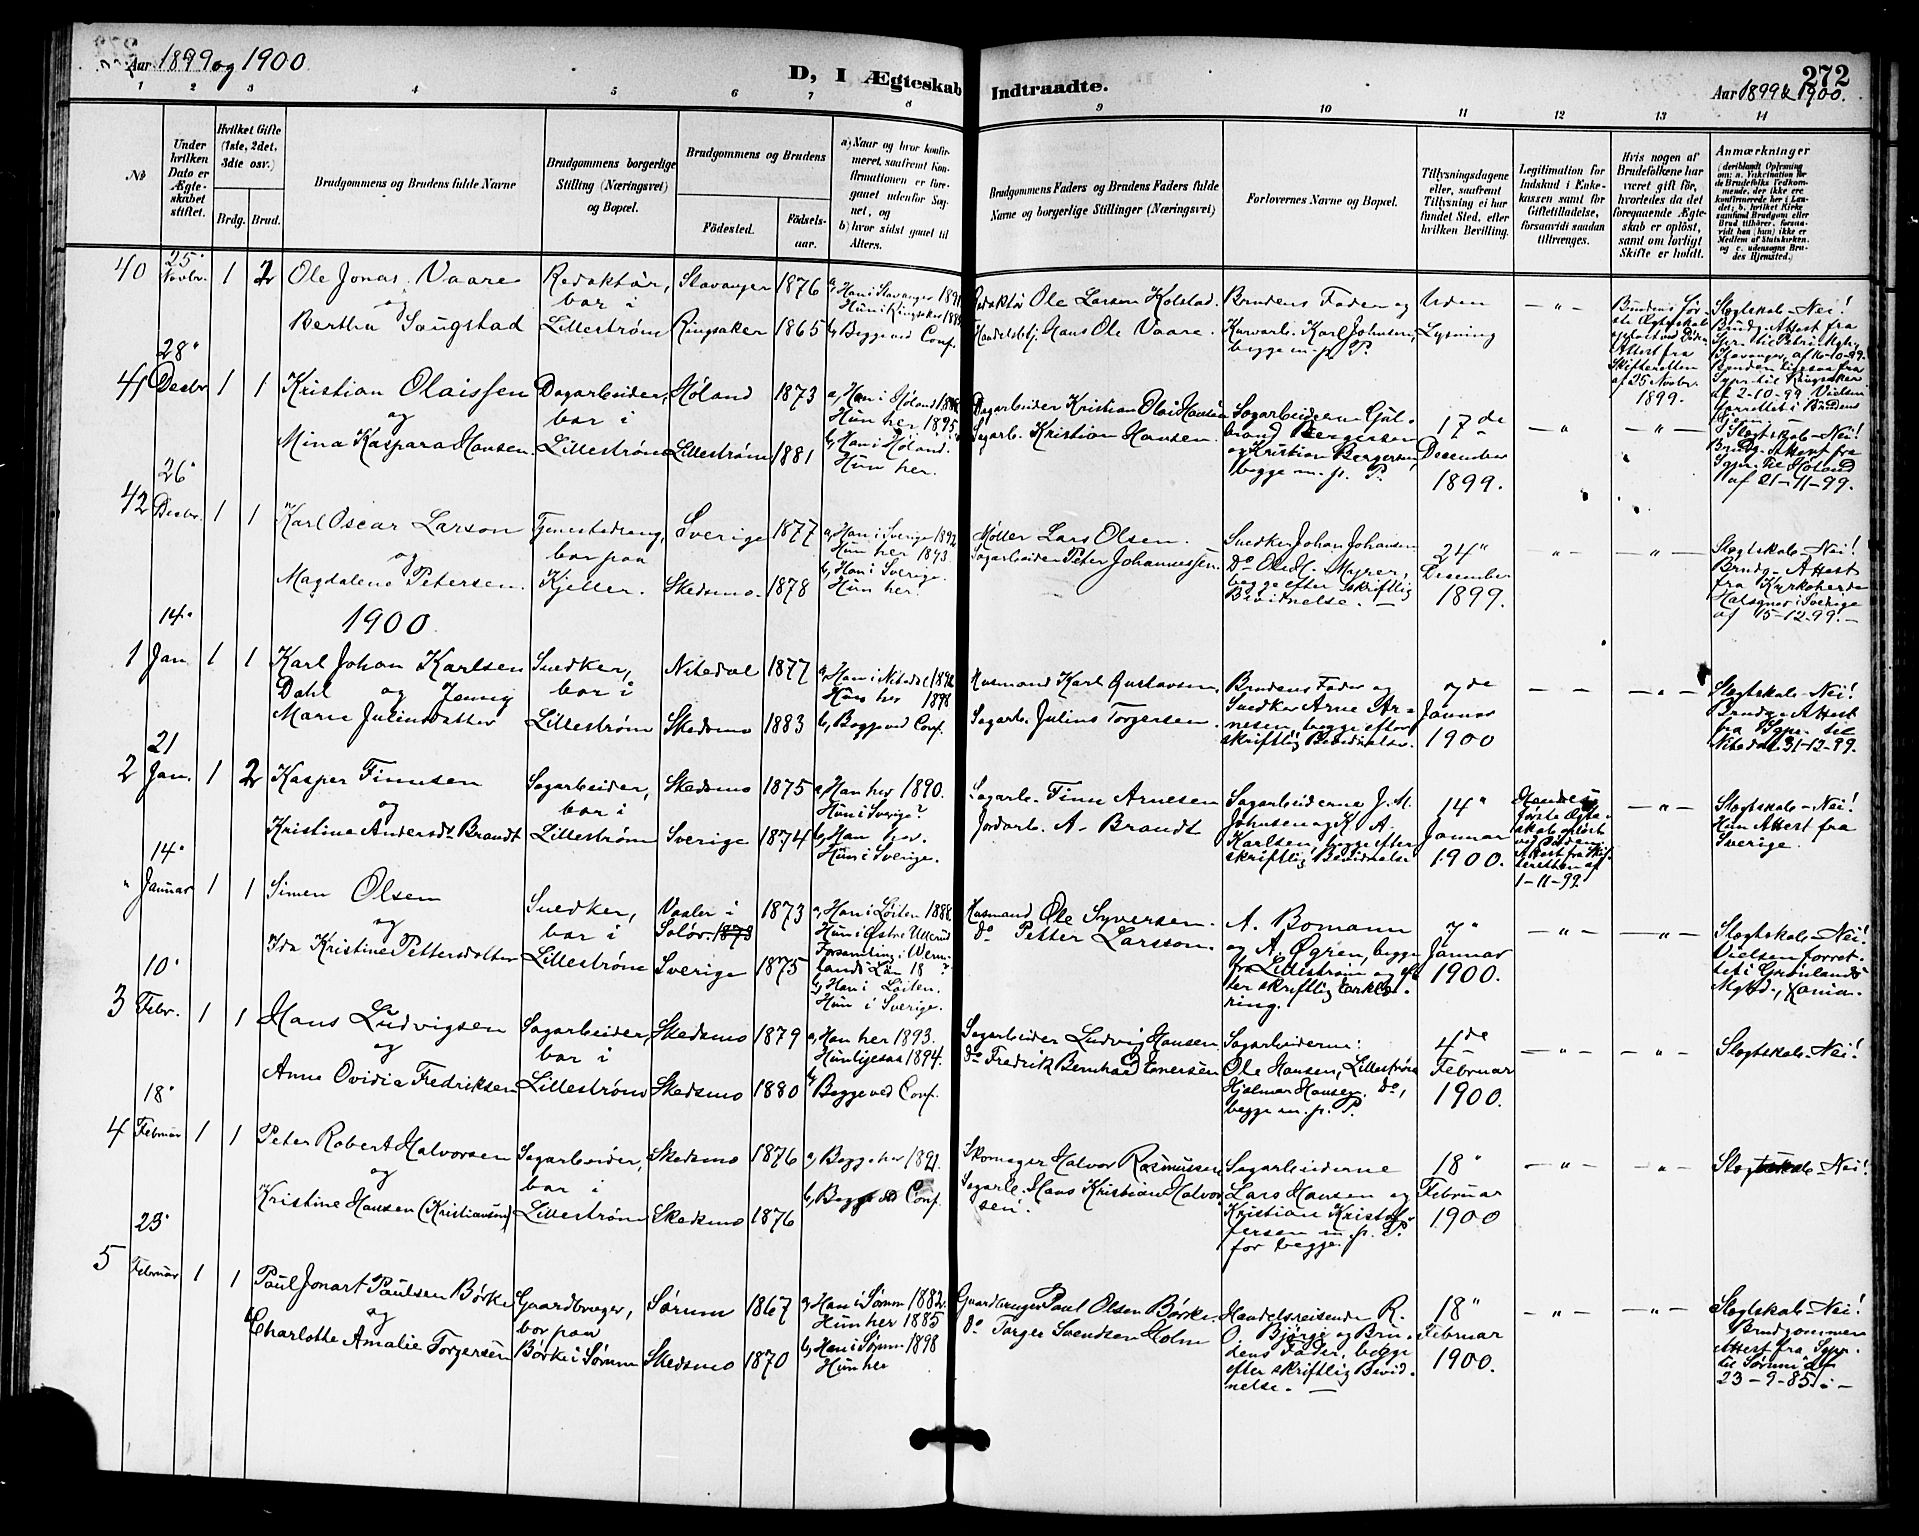 Aar 1899 og 1900
D, I Ægteskab Indtraadte.
272
Aar 1899 & 1900.
1 2 3 4 5 6 7 8 9 10 11 12 13 14
No
Under hvilken Dato er Ægteskabet stiftet.
Hvilket Gifte (1ste, 2det, 3die osv.)
Brdg. Brud.
Brudgommens og Brudens fulde Navne
Brudgommens borgerlige Stilling (Næringsvei) og Bopæl.
Brudgommens og Brudens
Fødested. Fødselsaar.
a) Naar og hvor konfirmeret, saafremt Konfirmationen er foregaaet udenfor Sognet, og
b) hvor sidst gaaet til Alters.
Brudgommens Faders og Brudens Faders fulde Navne og borgerlige Stillinger (Næringsvei)
Forlovernes Navne og Bopæl.
Tillysningsdagene eller, saafremt Tillysning ei har fundet Sted, efter hvilken Bevilling.
Legitimation for Indskud i Enkekassen samt for Giftetilladelse, forsaavidt saadan tiltrænges.
Hvis nogen af Brudefolkene har været gift før, hvorledes da det foregaaende Ægteskab er opløst, samt om lovligt Skifte er holdt.
Anmærkninger
40 25 Novbr. 1 2
Ole Jonas Vaare
og
Bertha Saugstad
Redaktør,
bor i
Lillestrøm
Stavanger 1876
Ringsaker 1865
a, Han i Stavanger
Hun i Ringsaker
b, Begge ved Conf.
Redaktør Ole Larsen Kolstad.
Handelsbtj. Hans Ole Vaare.
Brudens Fader og
Karl Johnsen,
begge m. p. P.
Uden
Lysning
— " —
Attest fra
Skifteretten
af 25 Novbr.
1899.
Slegtskab - Nei!
Brudg. Attest fra
Stavanger, af 10-10-99.
af 2-10-99
41 28 Decbr 1 1
Kristian Olaissen
og
Mina Kaspara Hansen.
Dagarbeider,
bor i
Lillestrøm
Høland 1873
Lillestrøm 1881
a, Han i Høland
Hun her 1895
b, Han i Høland.
Hun her.
Dagarbeider Kristian Olai Hansen
Sagarb. Kristian Hansen.
Sagarbeiderne Gulbrand
Bergersen
og Kristian Bergersen,
begge m. p. P.
17de
December
1899.
— " —
— " —
Slegtskab - Nei!
Brudg. Attest fra
Sgpr. til Høland
af 21-11-99.
42 26 Decbr. 1 1
Karl Oscar Larson
og
Magdalene Petersen.
Tjenestedreng,
bor paa
Kjeller.
Sverige 1877
Skedsmo 1878
a, Han i Sverige 1892
Hun her 1893
b, Han i Sverige.
Hun her.
Møller Lars Olsen.
Sagarbeider Peter Johannessen.
Snedker Johan Johansen
Do Ole J. Myrer,
begge efter skriftlig
Bevidnelse. —
24"
December
1899.
— " —
— " —
Slegtskab - Nei!
Brudg. Attest
fra Kyrkoherde
i Sverige
af 15-12-99. —
1900
1 14 Jan. 1 1
Karl Johan Karlsen
Dahl og Jenny
Marie Juliusdatter
Snedker,
bor i
Lillestrøm
Nitedal 1877
Skedsmo 1883
a, Han i Nitedal 1892
Hun her 1898
b, Begge ved Conf.
Husmand Karl Gustavsen.
Sagarb. Julius Torgersen.
Brudens Fader og
Snedker Arne Arnesen,
begge efter
skriftlig Bevidnelse.
7de
Januar
1900
— — —
— " —
Slegtskab - Nei!
Brudg. Attest
fra Sgpr. til
Nitedal 31-12-99.
2 21 Jan. 1 2
Kasper Finnsen
og
Kristine Andersdt. Brandt
Sagarbeider,
bor i
Lillestrøm
Skedsmo 1875
Sverige 1874
a, Han her 1890.
Hun i Sverige?
b, Han her.
Hun i Sverige.
Sagarb. Finn Arnesen
Jordarb. A. Brandt
Sagarbeiderne J. M.
Johnsen og K. A.
Karlsen, begge efter
skriftlig Bevidnelse
14"
Januar
1900.
Hendes
første Ægteskab
opløst
ved Døden
Attest fra Skifteretten
af
1-11-99.
— " —
Slegtskab - Nei!
Hun Attest fra
Sverige.
" 14 Januar 1 1
Simen Olsen
og
Ida Kristine Pettersdatter
Snedker,
bor i
Lillestrøm
Vaaler i
Solør. 1873
1873
Sverige 1875
a, Han i Løiten 1888.
Hun i Østre Ullerud
Forsamling i Wermlands
Län 18 ?
b, Han i Løiten.
Hun i Sverige.
Husmand Ole Syversen.
do Petter Larsson.
A. Bomann
og A. Øgren, begge
fra Lillestrøm og efter
skriftlig Erklæring.
7"
Januar
1900.
— " —
— " —
Slegtskab - Nei!
Vielsen forrettet
i Grønlands
Mghd., Xania.
3 10 Febr. 1 1
Hans Ludvigsen
og
Anna Ovidia Fredriksen
Sagarbeider,
bor i
Lillestrøm
Skedsmo 1879
Skedsmo 1880
a, Han her 1893.
Hun ligesaa 1894.
b, Begge ved Conf.
Sagarbeider Ludvig Hansen.
do Fredrik Bernhard Enersen
Sagarbeiderne:
Ole Hansen, Lillestrøm
Hjalmar Hansen, do,
begge m. p. P.
4de
Februar
1900.
— " —
— " —
Slegtskab - Nei!
4 18 Februar 1 1
Peter Robert Halvorsen
og
Kristine Hansen (Kristiansen)
Sagarbeider,
bor i
Lillestrøm
Skedsmo 1876
Skedsmo 1876
a, Begge her 1891.
b, Begge ved Conf.
Skomager Halvor Rasmussen
Sagarb. Hans Kristian Halvorsen.
Sagarbeiderne
Lars Hansen og
Kristian Kristoffersen
m. p. P.
for begge.
18"
Februar
1900
— " —
— " —
Slegtskab - Nei!
5 23 Februar 1 1
Paul Jonart Paulsen Børke
og
Charlotte Amalie Torgersen
Gaardbruger,
bor paa
Børke i Sørum
Sørum 1867
Skedsmo 1870
a, Han i Sørum 1882.
Hun her 1885
b, Han i Sørum 1898
Hun her
Gaardbruger Paul Olsen Børke.
do Torger Svendsen Holm
Handelsreisende R.
O. Bjørge og Brudens
Fader, begge
efter skriftlig Bevidnelse. —
18"
Februar
1900.
— " —
— " —
Slegtskab - Nei!
Brudgommen
Attest fra Sgpr.
til Sørum af
23-9-85. —